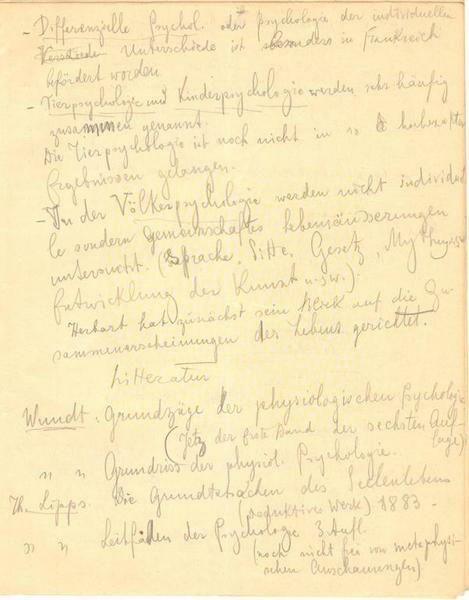 - Differenzielle Psychol. oder psychologie der individuellen
Unterschiede ist besonders in Frankreich
befördert worden.
- Tierpsychologie und Kinderpsychologie werden sehr häufig
zusammen genannt.
Die Tierpsychologie ist noch nicht in so
Ergebnissen gelangen.
- In der Völkerpsychologie werden nicht individuel
le sondern gemeinschaftes lebensäusserungen
untersucht. (Sprache, Sitte, Gesetz, Mythus,
Entwicklung der Kunst u.s.w.).
Herbart hat zunächst sein Werk auf die Zu-
sammenerscheinungen des Lebens gerichtet.
Litteratur
Wundt: Grundzüge der physiologischen Psychologie
(Jetz der erste Band der sechsten Auf-
lage)
" " Grundriss der physiol. Psychologie.
Th. Lipps. Die Grundtatsachen des Seelenlebens
(Werk) 1883 -
" " Leitfaden der Psychologie 3 Aufl.
(noch nicht frei von metaphysi-
schen Anschauungen)